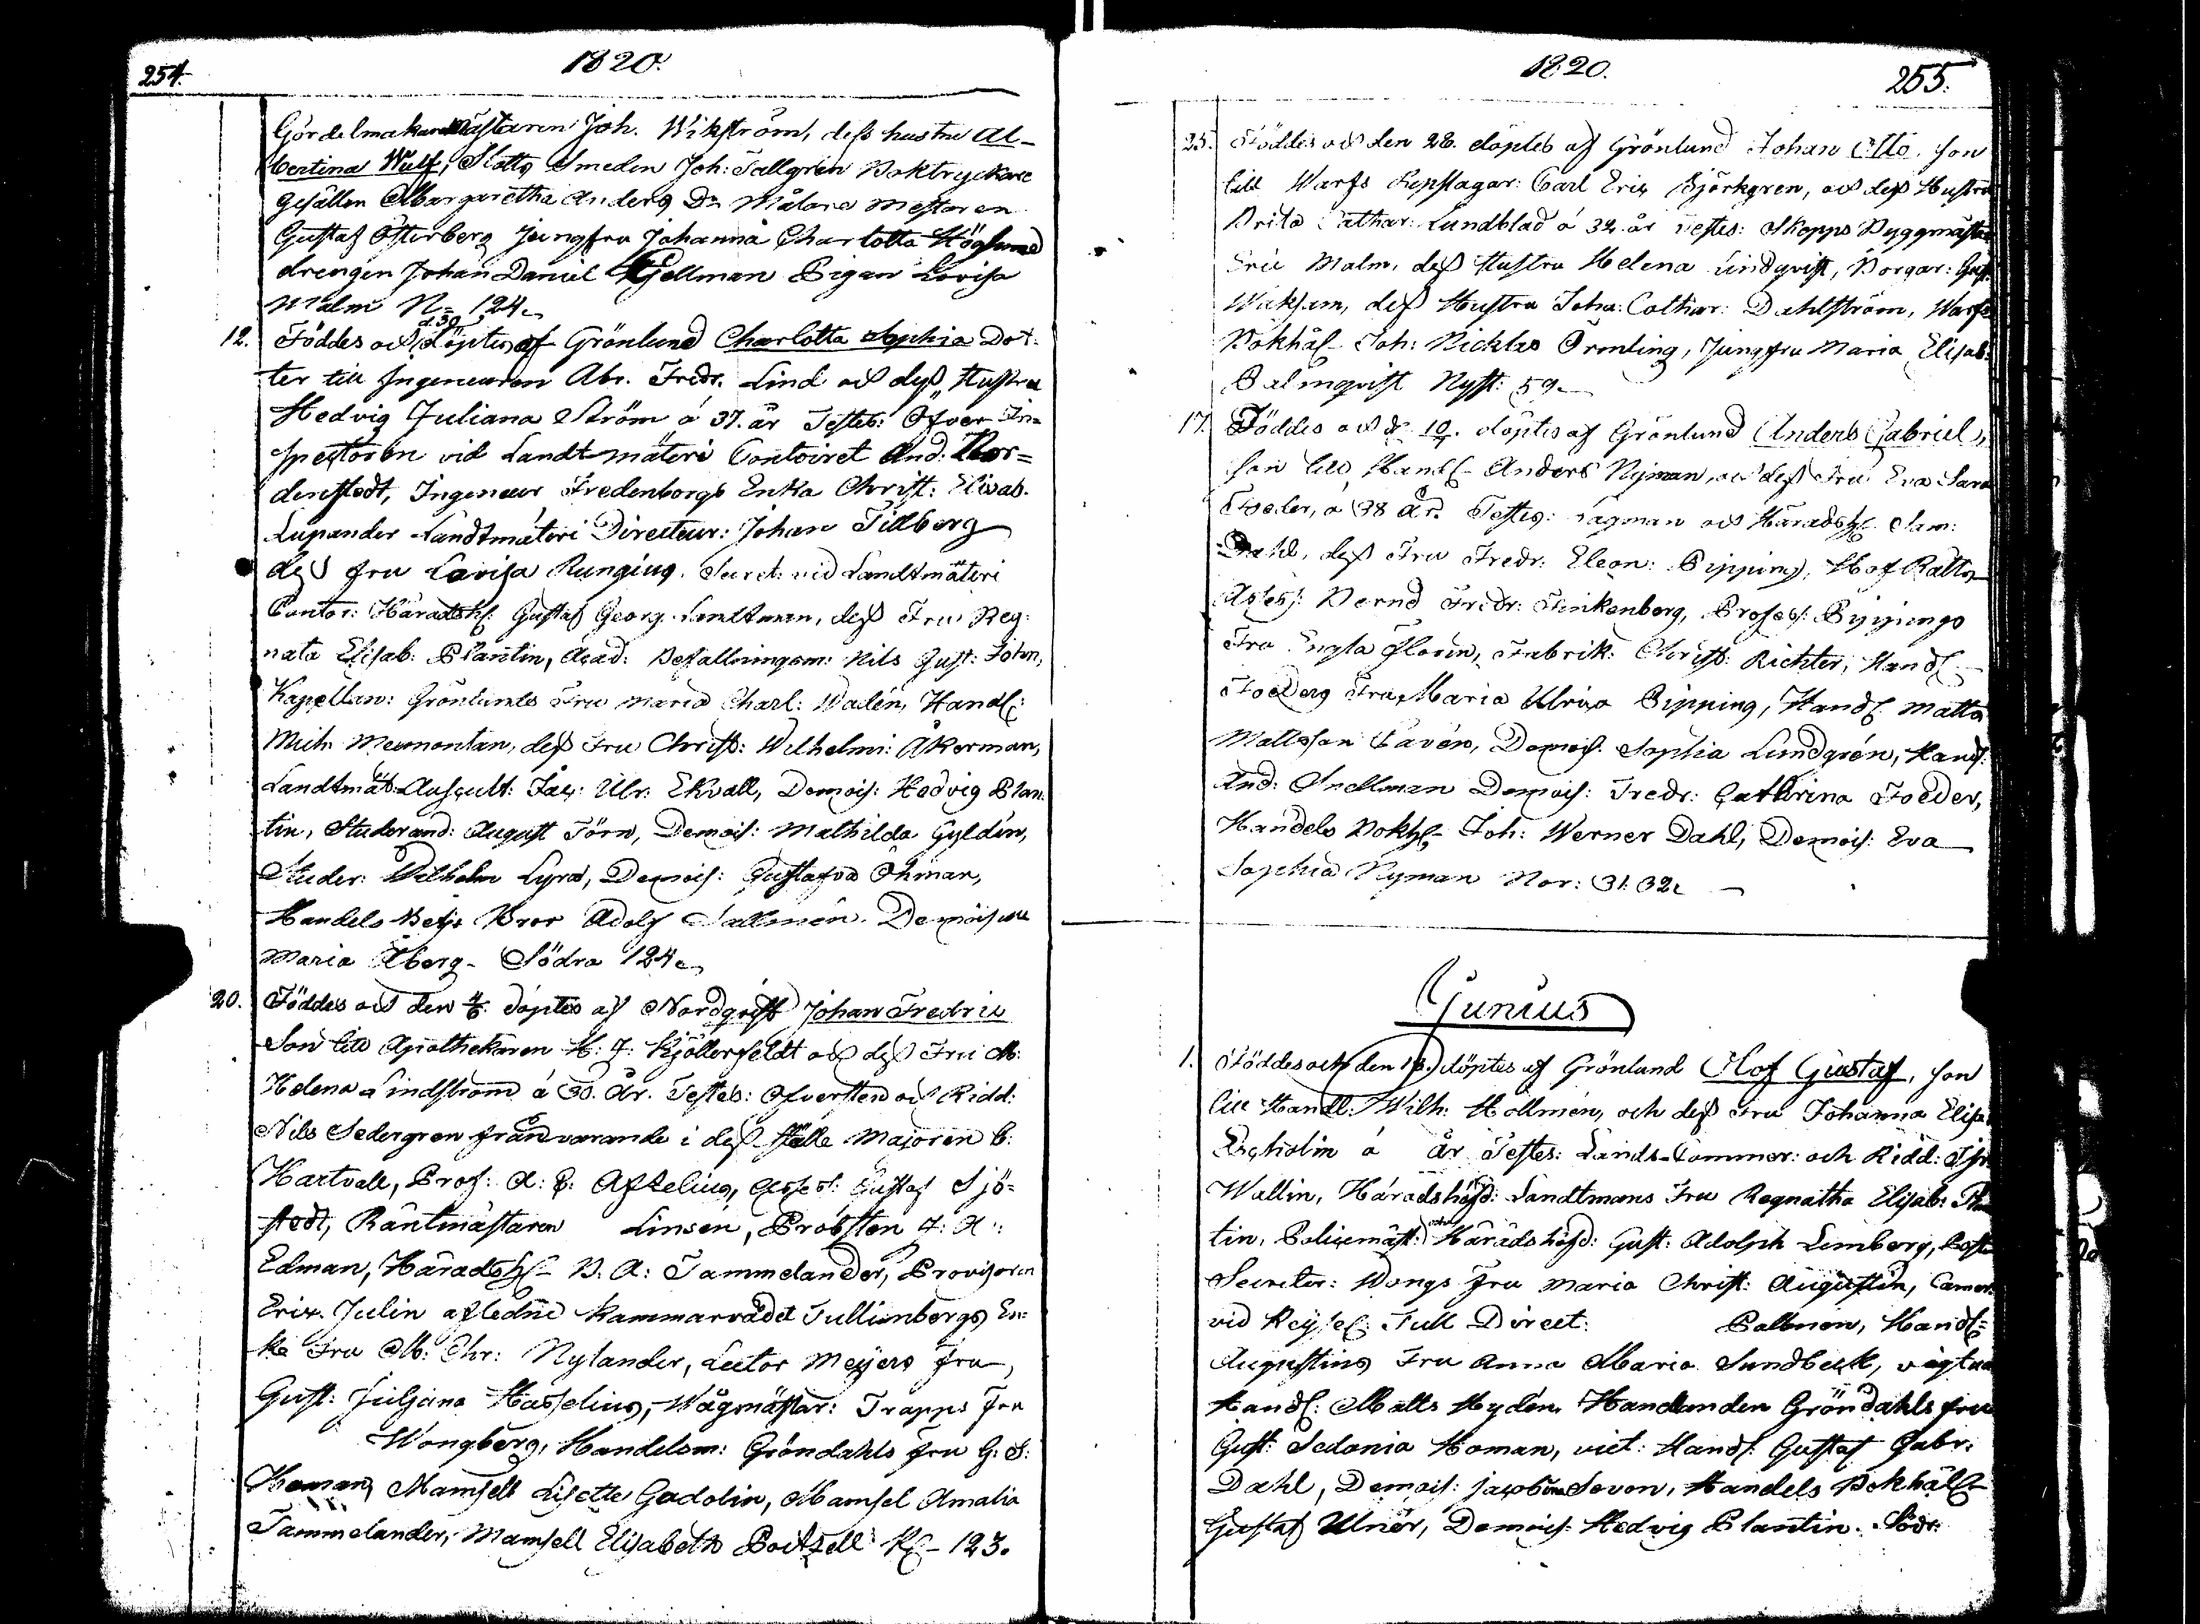 254.
1820.
Gördelmakaremästaren Joh. Wikström, dess hustru Al-
bertina Wulf, Slotts Smeden Joh: Tallgren Boktryckare
gesällen Margaretha Anders Dr Målare mestaren
Gustaf Österberg jungfru Johanna Charlotta Höglund
drengen Johan Daniel Kjellman Pigan Lovisa
Malm N= 124.
12. Föddes och d. 30 döptes af Grönlund Charlotta Sophia Dot-
ter till Ingenieuren Abr. Fredr. Lind och dess Hustru
Hedvig Juliana Ström á 37. år Testes: Öfver In-
spectoren vid Landtmäteri Contoiret And: Nor=
denstedt, Ingenieur Fredenborgs Enka Christ: Elisab.
Lupander Landtmäteri Directeur: Johan Tillberg
dess fru Lovisa Rungius. Secret: vid Landtmäteri
Contor: Häradsh: Gustaf Georg Landtman, dess Fru Reg:
nata Elisab: Plantin, Acad: Befallningsm: Nils Gust: John,
Kapellan: Grönlunds Fru Maria Charl: Wadén, Handl:
Mich: Meunontan, dess Fru Christ: Wilhelmi: Åkerman,
Landtmät: Auscult: Jac: Ulr: Ekvall, Demois: Hedvig Plan-
tin, Studerand: August Törn, Demois: Mathilda Gyldén,
Studer: Wilhelm Lyra, Demois: Gustafva Öhman,
Handels Adolf Sallmén. Demoiselle
Maria Åberg. Södra 124.
20. Föddes och den 4/6. döptes af Nordqvist Johan Fredric
Son till Apothekaren H: F: Kjöllerfeldt och dess Fru M:
Helena Lindström á 30. År. Testes: Öfversten och Ridd:
Nils Sedergren frånvarande i dess ställe Majoren C:
Hartvall, Prof: A: E: Afzelius, Assess: Gustaf Sjö-
stedt, Räntmästaren Linsén, Probsten F: A:
Edman, Häradsh: N: A: Tammelander, Provisoren
Eric Julin afledne Kammarrådet Tullienbergs En-
ka Fru M: Chr: Nylander, Lector Meyers fru,
Gust: Juliana Hasselius, Wågmästar: Trapps fru
Wongberg, Handelsm: Gröndahls fru G: S:
Homan, Mamsell Lisette Gadolin, Mamsel Amalia
Tammelander, Mamsell Elisabeth Poitzell Kl- 123.
1820.
255.
25. Föddes och den 28. döptes af Grönlund Johan Otto. son
till Warfs Repslagar: Carl Eric Björkgren, och dess Hustru
Brita Cathar: Lundblad á 32 år Testes: Skepps Byggmästar
Eric Malm, dess Hustru Helena Lindqvist, Borgar: Gust.
Wiksam, dess Hustru Joha: Cathar: Dahlström, Warfs
Bokhål- Joh: Nicklas Örnling, Jungfru Maria Elisab:
Palmqvist Nyst: 59.
17. Föddes och d: 10. döptes af Grönlund Anders Gabriel,
son till Handl- Anders Nyman, och dess Fru Eva Sara
Foeder, á 38 år. Testes: Lagman och Häradsh: Sam:
Dahl, dess Fru Fredr: Eleon: Pipping, Hof Rätts
Assess: Bernd Fredr: Finkenberg, Profess: Pippings
Fru Engla Florin, Fabrik: Christ: Richter, Handl-
Foeders Fru Maria Ulrica Pipping, Handl Matts
Mattsson Pavén, Demois: Sophia Lundgrén, Handl:
And: Snellman Demois: Fredr: Cathrina Foeder,
Handels Bokh- Joh: Werner Dahl, Demois: Eva
Sophia Nyman Nor: 31. 32.
Junius
1. Föddes och den 18. döptes af Grönlund Olof Gustaf, son
till Handl: Wilh: Hollmén, och dess Fru Johanna Elisa
Ekholm á år Testes: Lands-Commer: och Ridd:
Wallin, Häradshöfd: Landtmans Fru Regnatha Elisab: Plan
tin, Policemäst: och Häradshöfd: Gust: Adolph Lemberg, Post
Secreter: Wongs Fru Maria Christ: Augustin, Camer:
vid Kejsel: Tull Direct: Pallmen, Handl=
Augustins Fru Anna Maria Sundbeck,
Handl: Matts Hydén, Handlanden Gröndahls fru
Gust: Sedonia Homan, vict: Handl: Gustaf Gabr:
Dahl, Demois: Jacobina Soven, Handels Bokhåll-
Gustaf Ulnér, Demois: Hedvig Plantin. Södr: